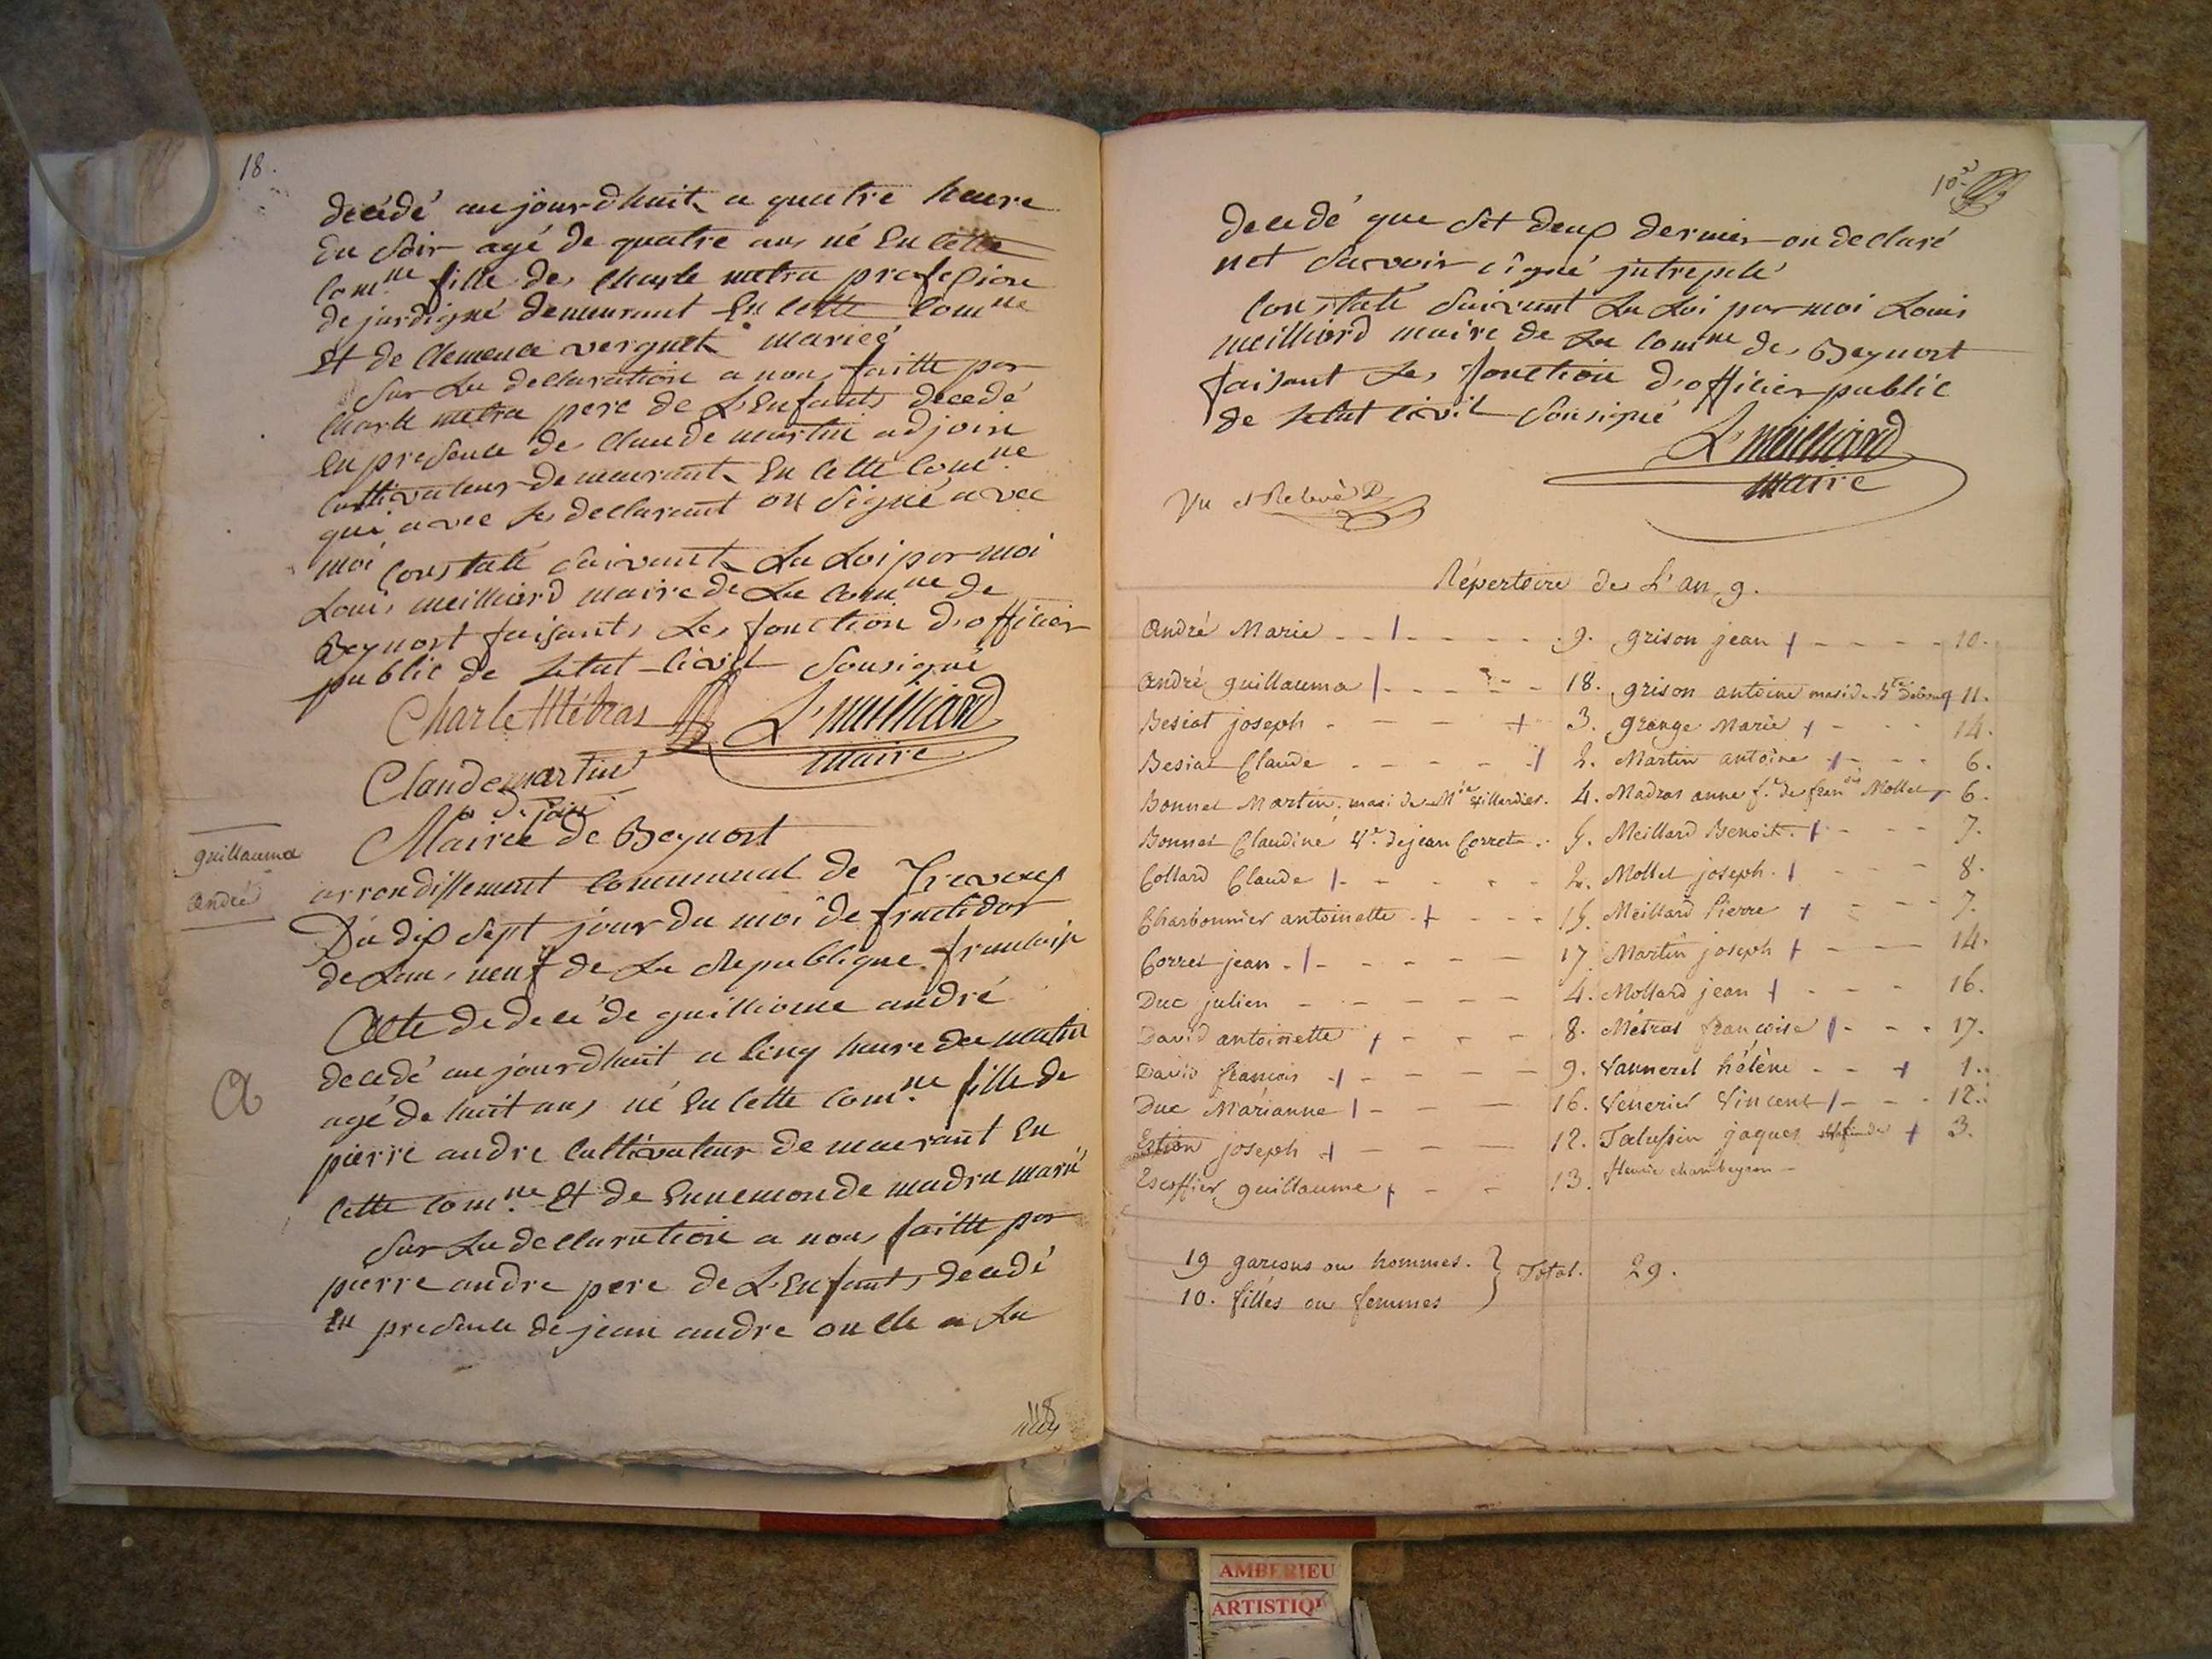 18.
décédé aujourdhuit a quatre heure
du Soir agé de quatre ans né En Cette
Comne fille de Charle metra profesion
de jardigné demeurant En Cette Comne
Et de Clemence verguet mariée
Sur La declaration a nous faitte par
Charle metra pere de L'Enfants décedé
En presence de Claude martin adjoin
Cultivateur demeurant En Cette Comne
qui avec Le declarant on Signé avec
moi Constaté Suivant La Loi par moi
Louis meilliard maire de La Comne de
Beynost faisant Les fonction d'officier
public de Letat Civil Sousigné
Charle Métras L. meilliard
maire
Claude martin
adjoin
Mairée de Beynost
guillaume
andré
arrondissement Communal de Trevoux
Du dix Sept jour du moi de fructidor
de Lan neuf de La Republique francaise
Acte de décé de guilliome andré
decedé aujourdhuit a Cinq heure du matin
agé de huit ans né En Cette Comne fille de
a
pierre andre Cultivateur demeurant En
Cette Comne Et de Ennemonde madra marié
Sur La declaration a nous faitte par
pierre andre pere de L'Enfants décedé
En presence de jean andre oncle a La
118
decedé que Set deux dernier on declaré
net Savoir Signé jntrepelé
Constaté Suivant La Loi par moi Louis
meilliard maire de La Comne de Beynost
faisant Les fonction d'officier public
de Letat Civil Sousigné
L. meilliard
maire
Vu et Relevé
Répertoire de L'an 9.
André Marie 9. grison jean 10.
André guillaume 18. grison antoine mari de 11.
Besiat joseph 3. grange Marie 14.
Besiat Claude 2. Martin antoine 6.
Bonnet Martin, mari de 4. Madras anne fe de françois Mollet 6.
Bonnet Claudine Ve de jean Corret 5. Meillard Benoit 7.
Collard Claude 2. Mollet joseph 8.
Charbonnier antoinette 15. Meillard Pierre 7.
Corret jean 17. Martin joseph 14.
Duc julien 4. Mollard jean 16.
David antoinette 8. Métras françoise 17.
David francois 9. Vanneret hélène 1.
Duc Marianne 16. Vénerier Vincent 12.
joseph 12. jaques 3.
Escoffier guillaume 13.
19 garcons ou hommes.
10. filles ou femmes
Total. 29.
AMBERIEU
ARTISTIQU